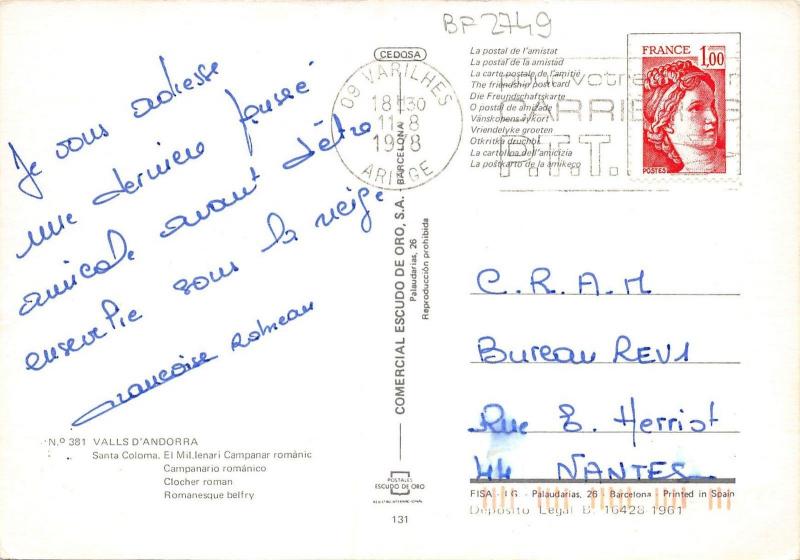 BF 2749
CEDOSA
La postal de l'amistat
La postal de la amistad
La carte postale de l'amitié
The friendship post card
Die Freundschaftskarte
O postal de amizade
Vänskopens vykort
Vriendelyke groeten
Otkritka druchbi
La cartolina dell'amicizia
La postkarto de la amikeco
FRANCE
1,00
POSTES
pour votre
CARRIERE
P.T.T.
09 VARILHES
18H30
11-8
1978
ARIEGE
Je vous adresse
une dernière pensée
amicale avant d'être
ensevelie sous la neige
Françoise
COMERCIAL ESCUDO DE ORO, S.A. BARCELONA
Palaudarias, 26
Reproducción prohibida
C.R.A.M
Bureau REV1
Rue E. Herriot
44 NANTES
N.º 381 VALLS D'ANDORRA
Santa Coloma. El Mil.lenari Campanar romànic
Campanario románico
Clocher roman
Romanesque belfry
POSTALES
ESCUDO DE ORO
131
FISA - I G - Palaudarias, 26 - Barcelona - Printed in Spain
Depósito Legal B. 16428-1961